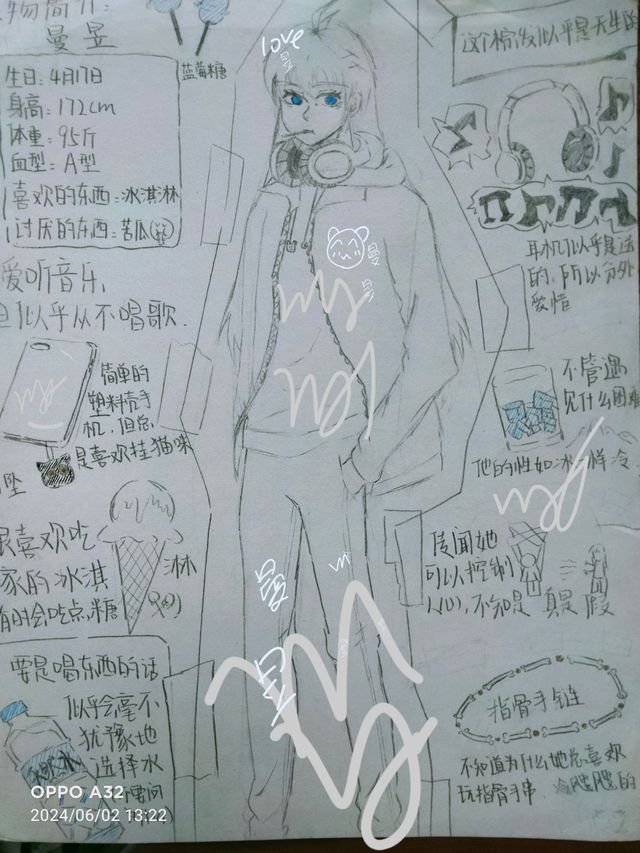 物简介:
曼昱
蓝莓糖
生日:4月17日
身高:172cm
体重:95斤
血型:A型
喜欢的东西:冰淇淋
讨厌的东西:苦瓜
爱听音乐,
但似乎从不唱歌.
简单的
塑料壳手
机,但总
是喜欢挂猫咪
坠
很喜欢吃
家的冰淇
淋
有时会吃点糖
要是喝东西的话
似乎会毫不
犹豫地
选择水
love
曼
曼
曼
这个棕发似乎是天生的
耳机似乎是送
的,所以分外
爱惜
不管遇
见什么困难
他的性如冰一样冷
传闻她
可以控制
人心,不知是真是假
指骨手链
不知道为什么她总喜欢
玩指骨手串,凉飕飕的
OPPO A32
2024/06/02 13:22